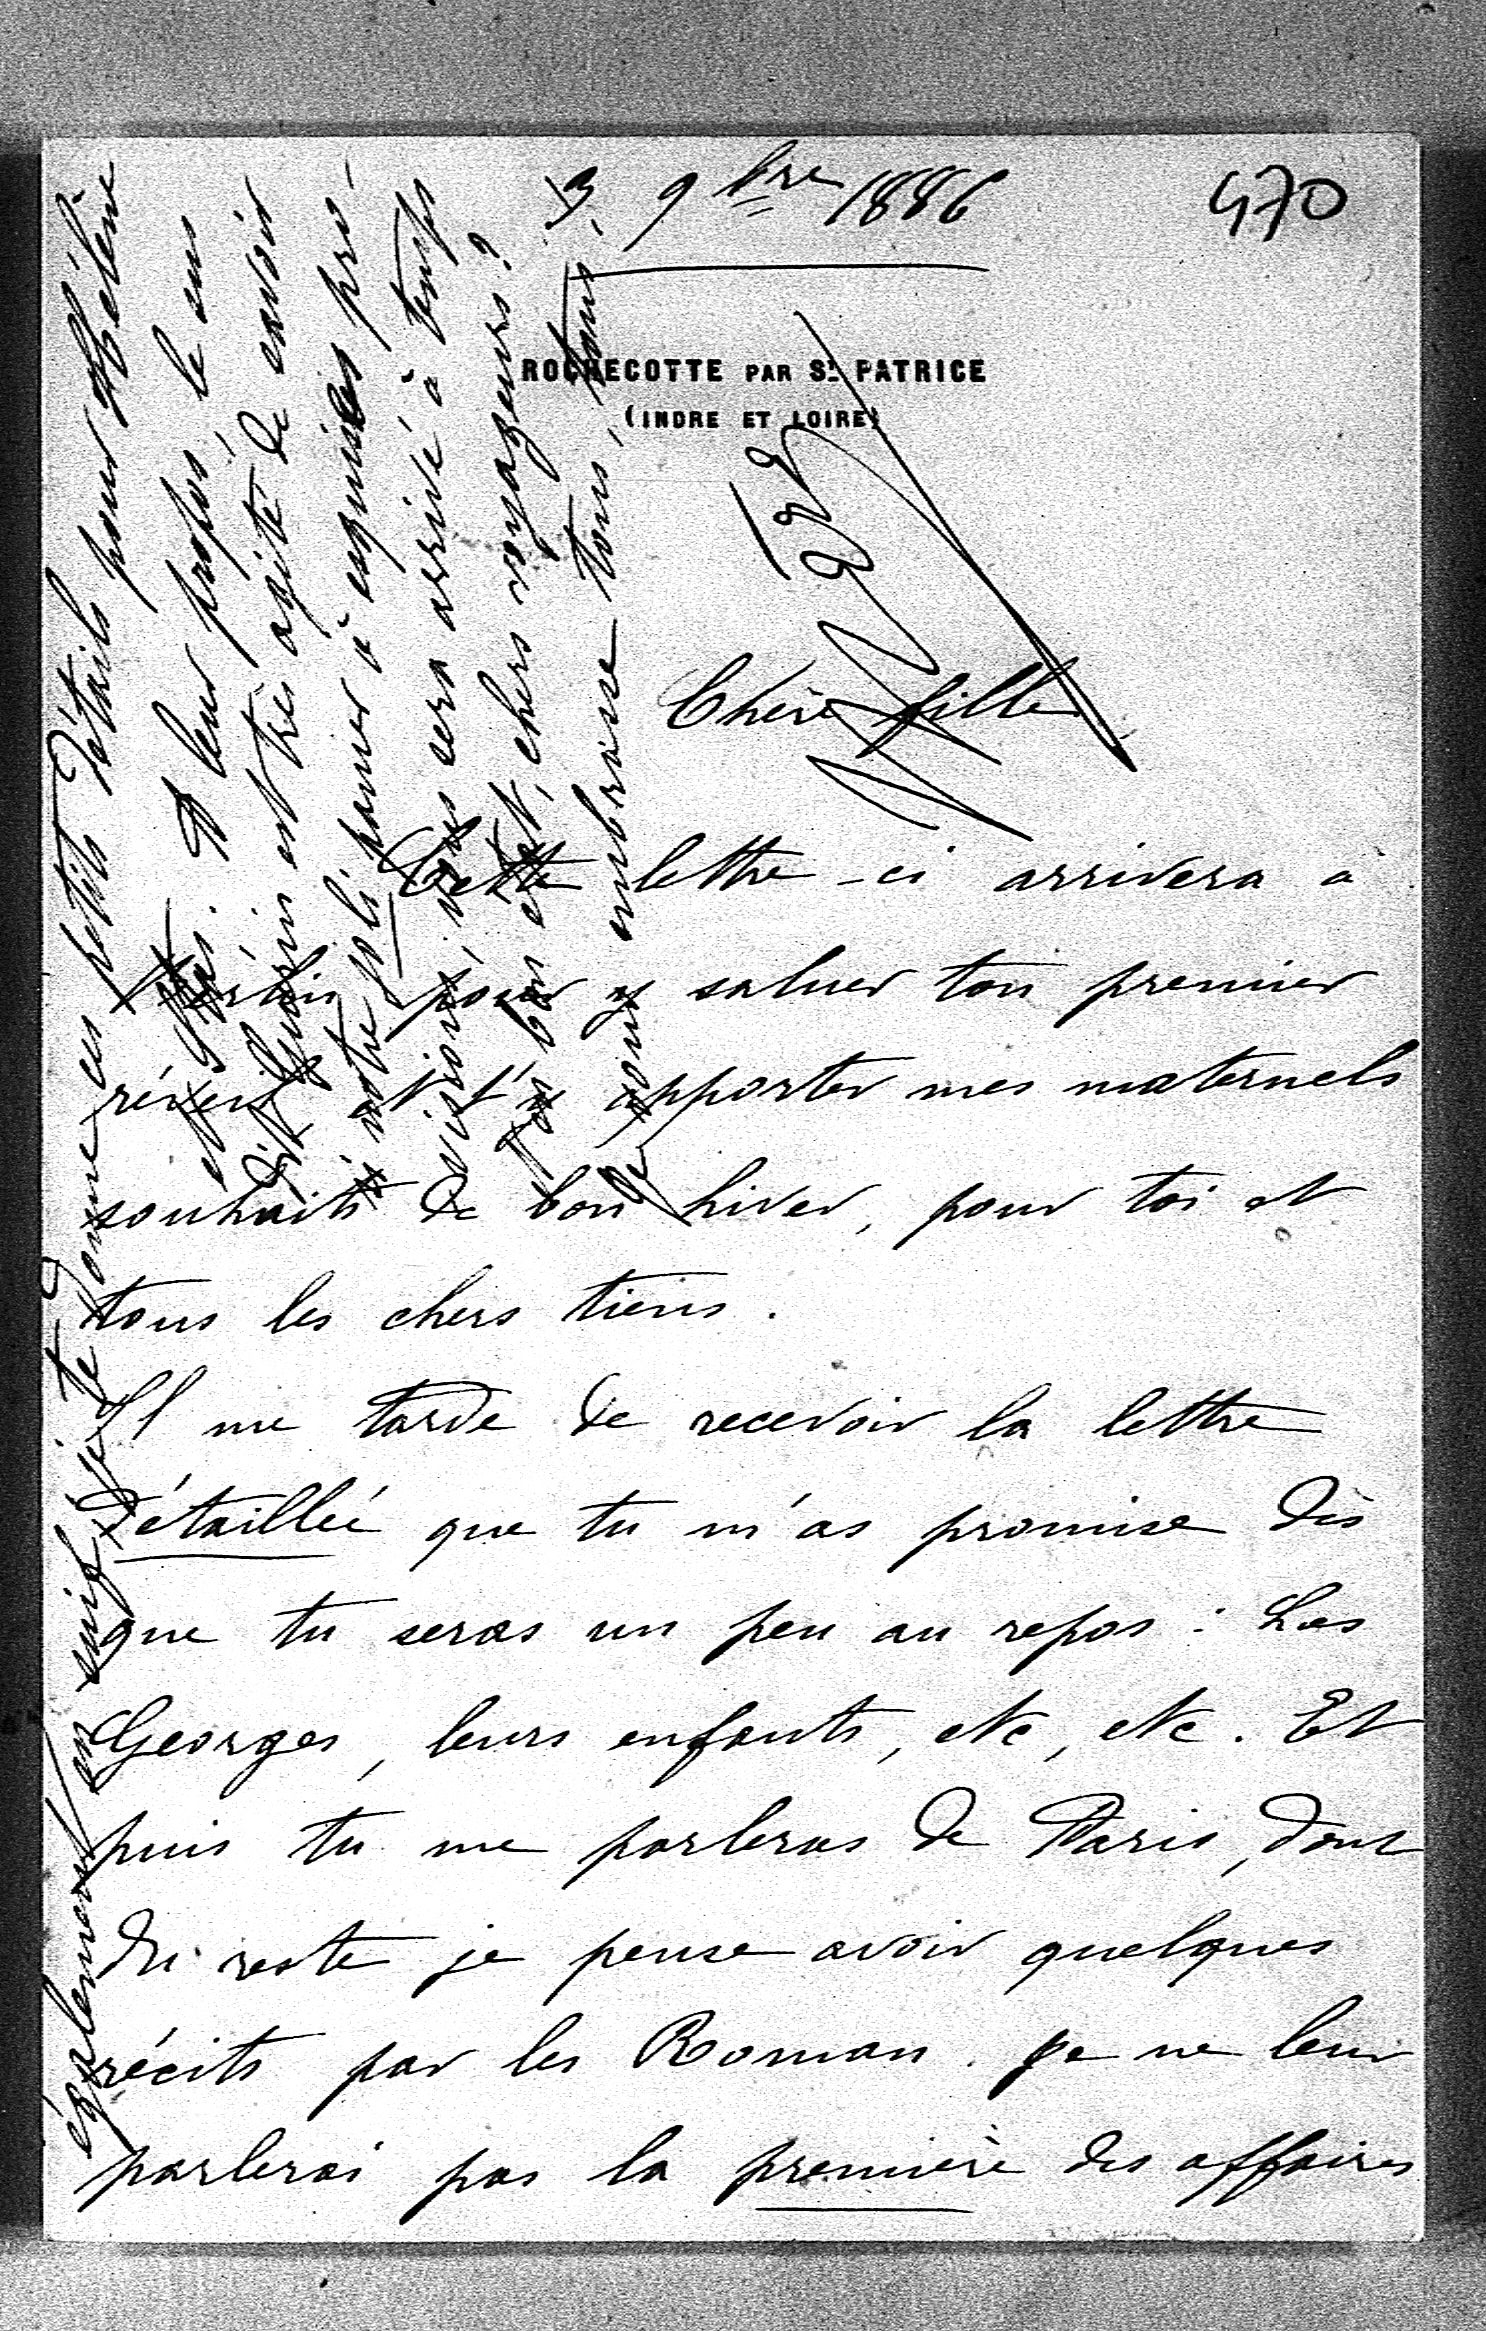 3. 9bre 1886
470
ROCHECOTTE PAR St. PATRICE
(INDRE ET LOIRE)
Chère fille
Cette lettre-ci arrivera à
Berlin pour y saluer ton premier
réveil et t'y apporter mes maternels
souhaits de bon hiver, pour toi et
tous les chers tiens.
Il me tarde de recevoir la lettre
détaillée que tu m'as promise dès
que tu seras un peu au repos : Les
Georges, leurs enfants, etc, etc. Et
puis tu me parleras de Paris, dont
du reste je pense avoir quelques
récits par les Roman. Je ne leur
parlerai pas la première des affaires
également je te donne ces petits détails pour Hélène
et toi. A leur propos, le
dit est très agité de savoir
si notre joli panier à exquises pro-
visions, vous sera arrivé à temps
en bon état, chers voyageurs?
Je vous embrasse tous, tous.